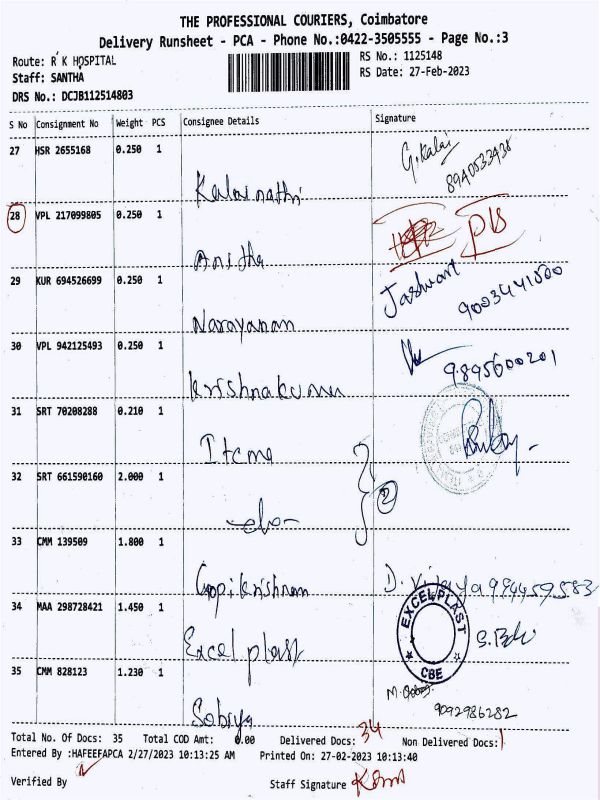 THE PROFESSIONAL COURIERS, Coimbatore
Delivery Runsheet - PCA - Phone No.:0422-3505555 - Page No.:3
Route: R K HOSPITAL
RS No.: 1125148
Staff: SANTHA
RS Date: 27-Feb-2023
DRS No.: DCJB112514803
S No Consignment No Weight PCS Consignee Details Signature
27 HSR 2655168 0.250 1
G. Kalai
8940533938
Kalainathi
28 VPL 217099805 0.250 1
DLS
Anitha
29 KUR 694526699 0.250 1
Jashwant
9003441500
Narayanan
30 VPL 942125493 0.250 1
9895600201
Krishnakumar
31 SRT 70208288 0.210 1
Itcma
32 SRT 661590160 2.000 1
2
-do-
33 CMM 139509 1.800 1
Gopikrishnan
D. Vijaya 994459583
34 MAA 298728421 1.450 1
EXCEL PLAST
CBE
Excel plast
35 CMM 828123 1.230 1
9092986282
Sobiya
Total No. Of Docs: 35 Total COD Amt: 0.00 Delivered Docs: 34 Non Delivered Docs: 1
Entered By :HAFEEFAPCA 2/27/2023 10:13:25 AM Printed On: 27-02-2023 10:13:40
Verified By
Staff Signature